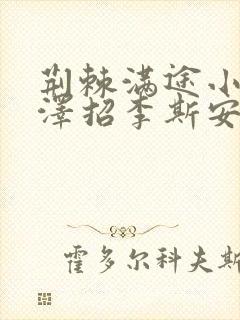 荆棘满途小
泽招李斯安
霍多尔科夫斯